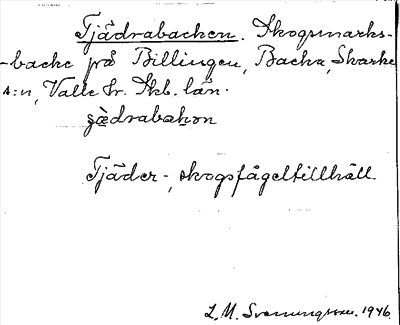 Tjädrabacken. Skogsmarks-
-backe på Billingen, Backa, Skarke
s:n, Valle hr. Skb. län.
çèdrabakɷn
Tjäder-, skogsfågeltillhåll
L. M. Svenungsson. 1946.